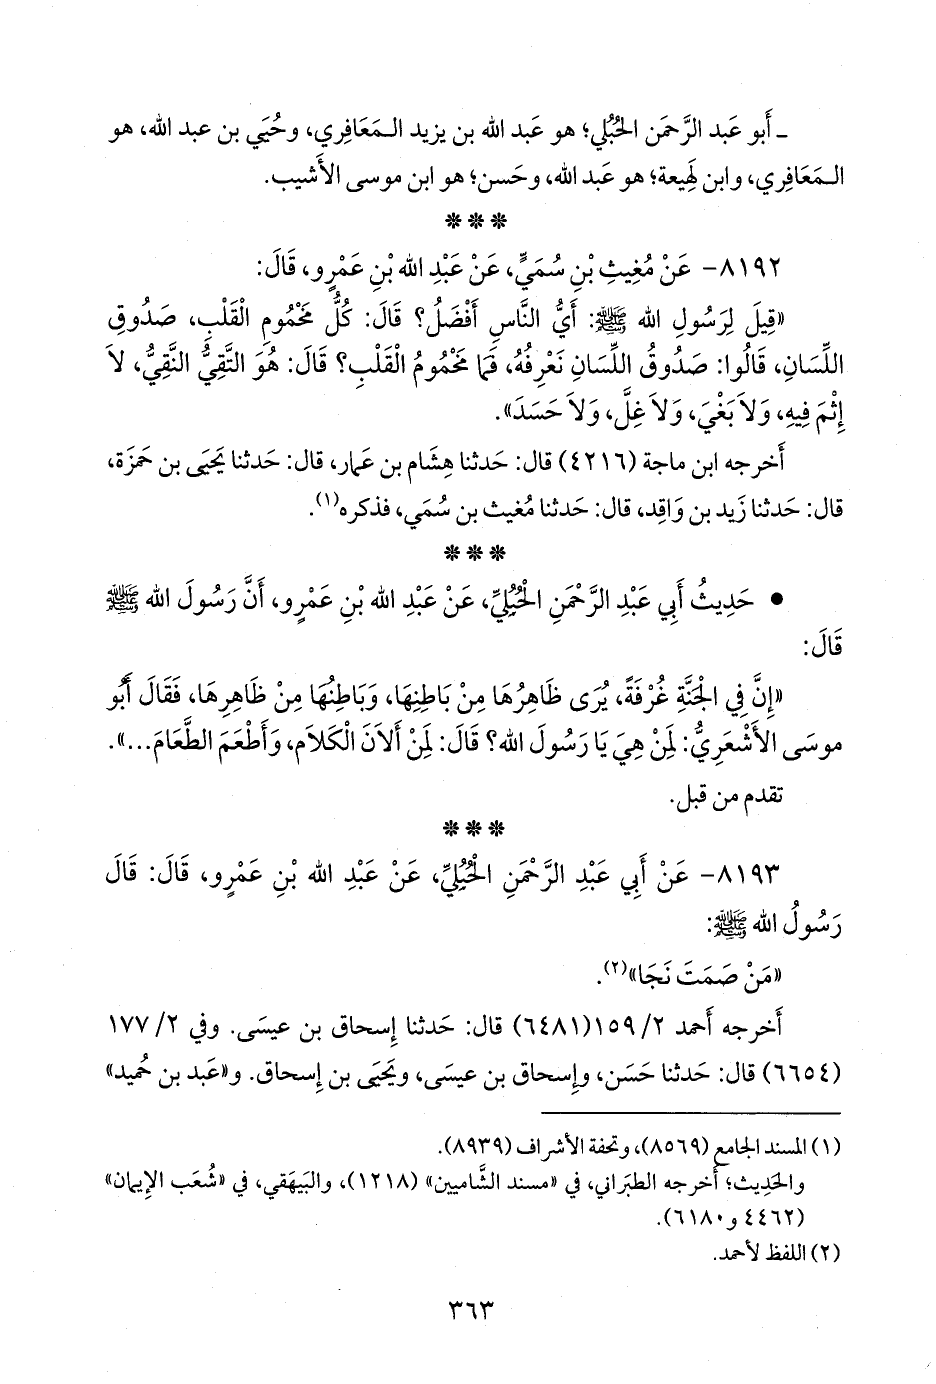 ـ أَبو عَبد الرَّحمَن الحُبُلي؛ هو عَبد الله بن يزيد الـمَعَافِري، وحُيَي بن عبد الله، هو
الـمَعَافِري، وابن لَهِيعة؛ هو عَبد الله، وحَسن؛ هو ابن موسى الأَشيب.
***
٨١٩٢- عَنْ مُغِيثِ بْنِ سُمَيٍّ، عَنْ عَبْدِ الله بْنِ عَمْرٍو، قَالَ:
«قِيلَ لِرَسُولِ الله ﷺ: أَيُّ النَّاسِ أَفْضَلُ؟ قَالَ: كُلُّ مَخْمُومِ الْقَلْبِ، صَدُوقِ
اللِّسَانِ، قَالُوا: صَدُوقُ اللِّسَانِ نَعْرِفُهُ، فَمَا مَخْمُومُ الْقَلْبِ؟ قَالَ: هُوَ التَّقِيُّ النَّقِيُّ، لاَ
إِثْمَ فِيهِ، وَلاَ بَغْيَ، وَلاَ غِلَّ، وَلاَ حَسَدَ».
أَخرجه ابن ماجة (٤٢١٦) قال: حَدثنا هِشَام بن عَمار، قال: حَدثنا يَحيَى بن حَمزَة،
قال: حَدثنا زَيد بن وَاقِد، قال: حَدثنا مُغيث بن سُمَي، فذكره(١).
***
● حَدِيثُ أَبِي عَبْدِ الرَّحْمَنِ الْحُبُلِيِّ، عَنْ عَبْدِ الله بْنِ عَمْرٍو، أَنَّ رَسُولَ الله ﷺ
قَالَ:
«إِنَّ فِي الْجَنَّةِ غُرْفَةً، يُرَى ظَاهِرُهَا مِنْ بَاطِنِهَا، وَبَاطِنُهَا مِنْ ظَاهِرِهَا، فَقَالَ أَبُو
موسَى الأَشْعَرِيُّ: لِمَنْ هِيَ يَا رَسُولَ الله؟ قَالَ: لِمَنْ أَلاَنَ الْكَلاَم، وَأَطْعَمَ الطَّعَامَ...».
تقدم من قبل.
***
٨١٩٣- عَنْ أَبِي عَبْدِ الرَّحْمَنِ الْحُبُلِيِّ، عَنْ عَبْدِ الله بْنِ عَمْرٍو، قَالَ: قَالَ
رَسُولُ الله ﷺ:
«مَنْ صَمَتَ نَجَا»(٢).
أَخرجه أَحمد ٢/ ١٥٩(٦٤٨١) قال: حَدثنا إِسحاق بن عيسَى. وفي ٢/ ١٧٧
(٦٦٥٤) قال: حَدثنا حَسَن، وإِسحاق بن عيسَى، ويَحيَى بن إِسحاق. و«عَبد بن حُميد»
(١) المسند الجامع (٨٥٦٩)، وتحفة الأشراف (٨٩٣٩).
والحَدِيث؛ أَخرجه الطبَراني، في «مسند الشَّاميين» (١٢١٨)، والبَيهَقي، في «شُعَب الإِيمان»
(٤٤٦٢ و٦١٨٠).
(٢) اللفظ لأحمد.
٣٦٣